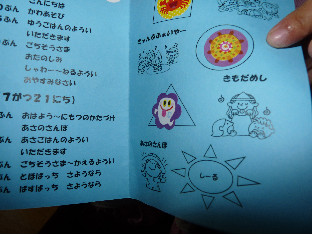 こんにちは
ぷん かわあそび
ぷん ゆうごはんのようい
いただきます
ぷん ごちそうさま
おたのしみ
しゃわー〜ねるようい
おやすみなさい
7がつ21にち)
ぷん おはよう〜にもつのかたづけ
あさのさんぽ
ぷん あさごはんのようい
いただきます
ぷん ごちそうさま〜かえるようい
ぷん とばばっち さようなら
ぷん ばすばっち さようなら
きゃんぷふぁいやー
きもだめし
あさのさんぽ
しーる